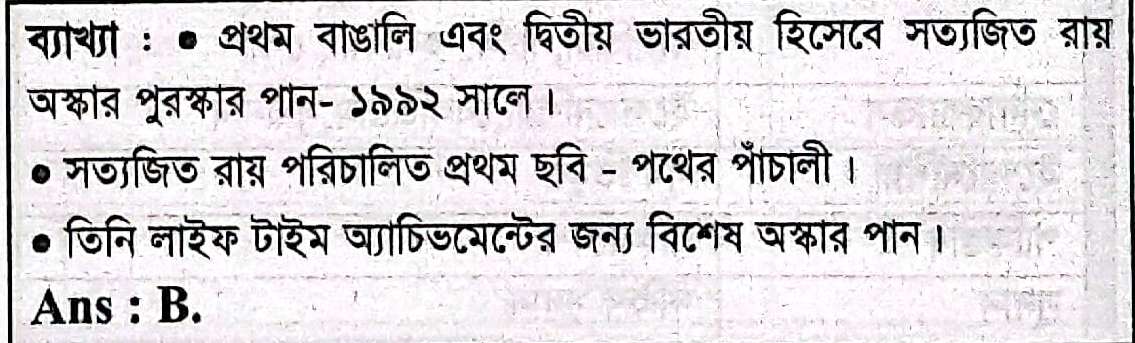 ব্যাখ্যা : ● প্রথম বাঙালি এবং দ্বিতীয় ভারতীয় হিসেবে সত্যজিত রায়
অস্কার পুরস্কার পান- ১৯৯২ সালে।
● সত্যজিত রায় পরিচালিত প্রথম ছবি - পথের পাঁচালী।
● তিনি লাইফ টাইম অ্যাচিভমেন্টের জন্য বিশেষ অস্কার পান।
Ans : B.